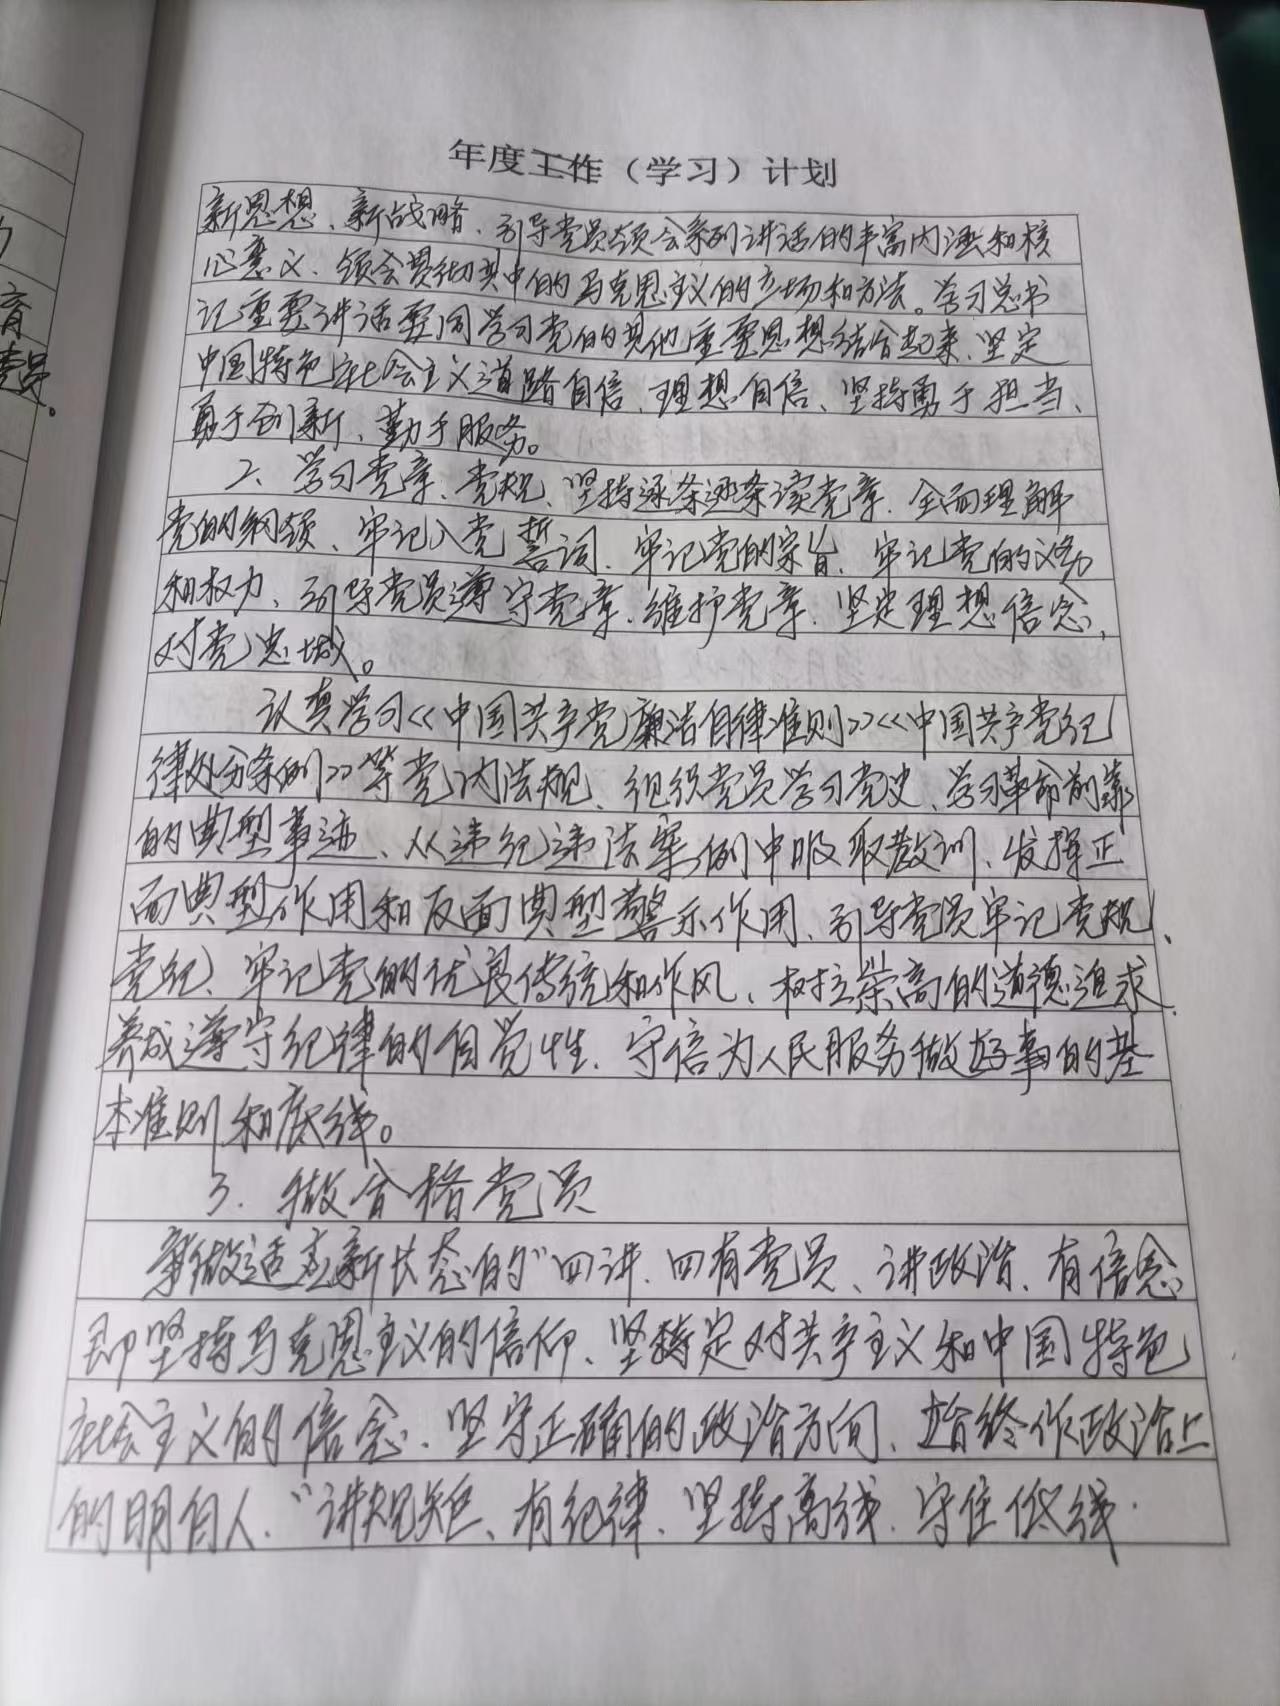 年度工作（学习）计划
新思想、新战略、引导党员领会系列讲话的丰富内涵和核
心意义、领会贯彻其中的马克思主义的立场和方法。学习总书
记重要讲话要同学习党的其他重要思想结合起来、坚定
中国特色社会主义道路自信、理想自信、坚持勇于担当、
勇于创新、勤于服务。
2、学习党章、党规、坚持逐条逐条读党章、全面理解
党的纲领、牢记入党誓词、牢记党的宗旨、牢记党的义务
和权力、引导党员遵守党章、维护党章、坚定理想信念、
对党忠城。
认真学习《中国共产党廉洁自律准则》《中国共产党纪
律处分条例》等党内法规、组织党员学习党史、学习革命前辈
的典型事迹、从违纪违法案例中吸取教训、发挥正
面典型作用和反面典型警示作用、引导党员牢记党规、
党纪、牢记党的优良传统和作风、树立崇高的道德追求、
养成遵守纪律的自觉性、守信为人民服务做好事的基
本准则和底线。
3. 做合格党员
争做适应新长态的“四讲、四有党员、讲政治、有信念
即坚持马克思主义的信仰、坚持定对共产主义和中国特色
社会主义的信念、坚守正确的政治方向、始终作政治上
的明白人、“讲规矩、有纪律、坚持高线、守住低线.
育
员。